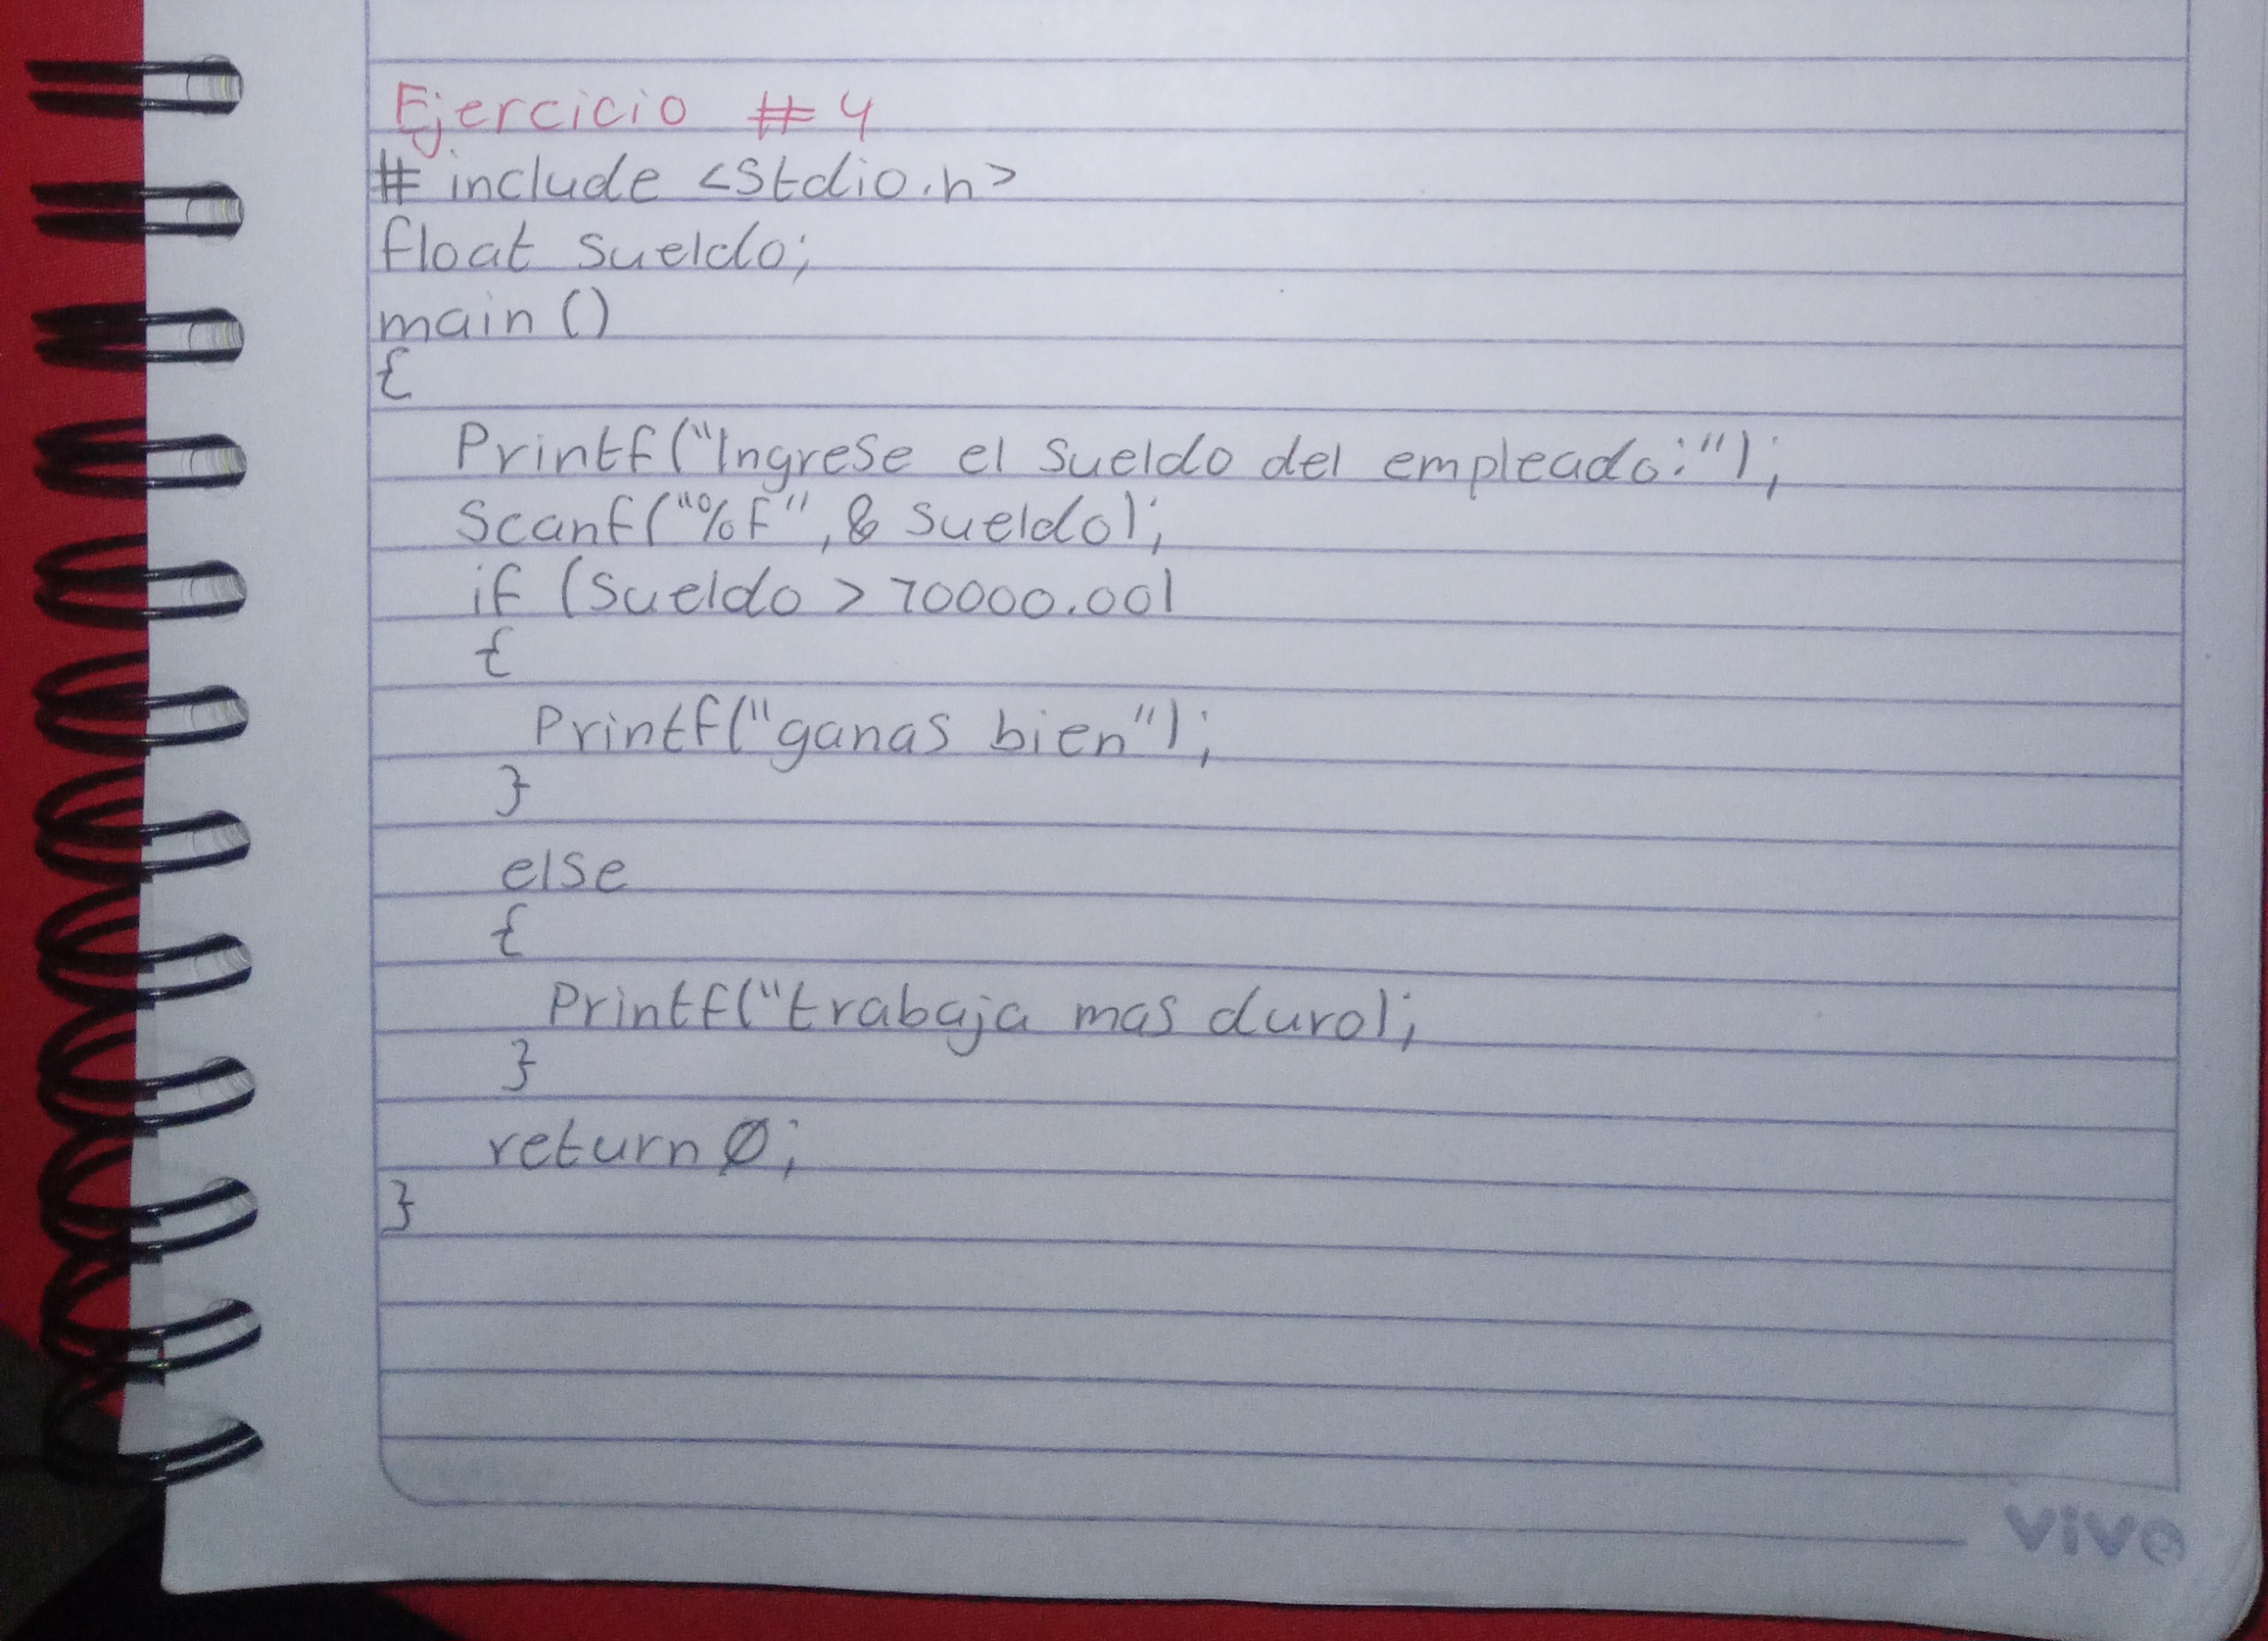 Ejercicio # 4
# include <stdio.h>
float sueldo;
main ()
{
Printf("Ingrese el sueldo del empleado:");
Scanf("%f",& sueldo);
if (sueldo > 70000.00)
{
Printf("ganas bien");
}
else
{
Printf("trabaja mas duro);
}
return 0;
}
vivo